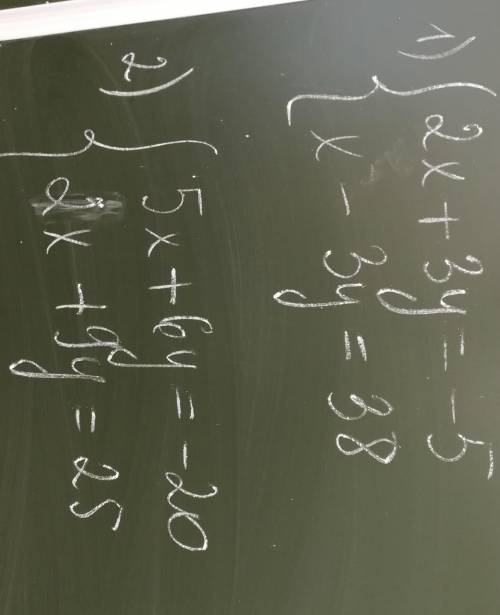 1) { 2x + 3y = -5
x - 3y = 38
2) { 5x + 6y = -20
2x + 9y = 25